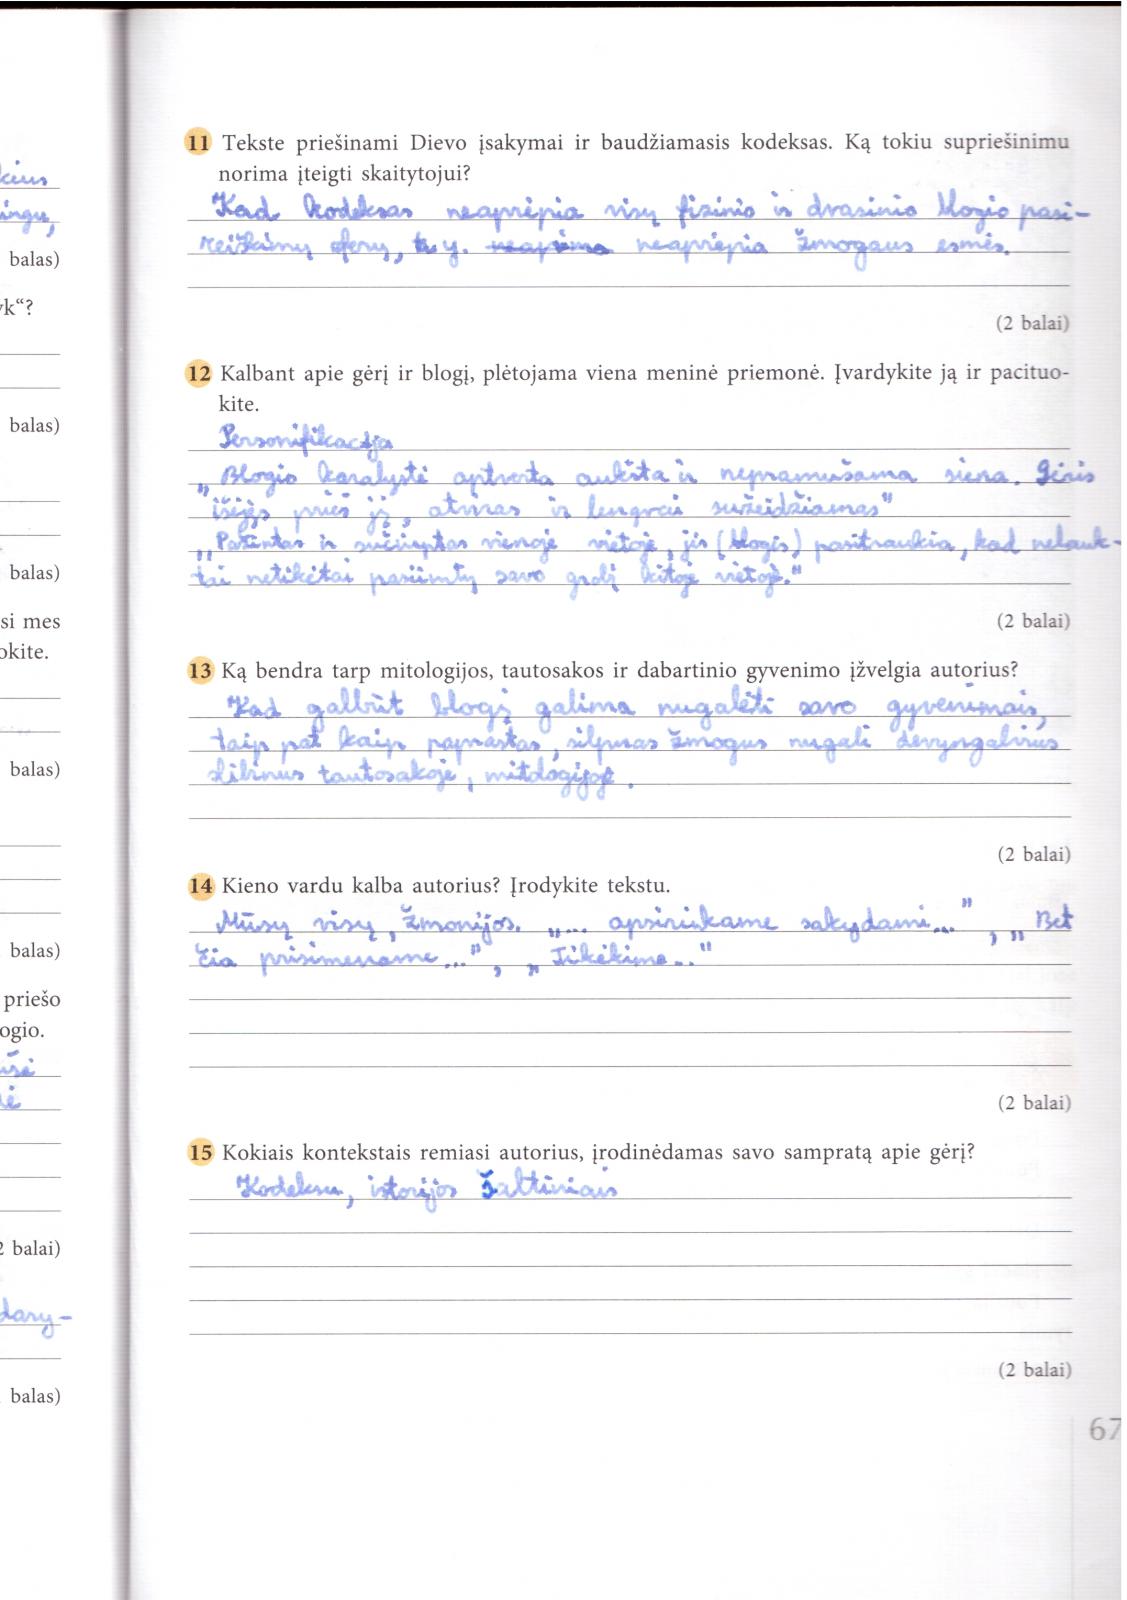 kius
ingu,
balas)
yk“?
balas)
balas)
si mes
okite.
balas)
balas)
priešo
ogio.
ė
2 balai)
dary-
balas)
11 Tekste priešinami Dievo įsakymai ir baudžiamasis kodeksas. Ką tokiu supriešinimu
norima įteigti skaitytojui?
Kad kodeksas neaprėpia visų fizinio ir dvasinio blogio pasi-
reiškimų sferų, t. y. neaprėpia žmogaus esmės.
(2 balai)
12 Kalbant apie gėrį ir blogį, plėtojama viena meninė priemonė. Įvardykite ją ir pacituo-
kite.
Personifikacija
„Blogio karalystė aptverta aukšta ir nepramušama siena. Gėris
išėjęs prieš ją, atviras ir lengvai sužeidžiamas"
„Pažintas ir sučiuptas vienoje vietoje, jis (blogis) pasitraukia, kad nelauk-
tai netikėtai pasiimtų savo grobį kitoje vietoje."
(2 balai)
13 Ką bendra tarp mitologijos, tautosakos ir dabartinio gyvenimo įžvelgia autorius?
Kad galbūt blogį galima nugalėti savo gyvenimais,
taip pat kaip paprastas, silpnas žmogus nugali devyngalvius
slibinus tautosakoje, mitologijoje.
(2 balai)
14 Kieno vardu kalba autorius? Įrodykite tekstu.
Mūsų visų, žmonijos. „... apsirinkame sakydami...", „Bet
čia prisimename...", „Tikėkime..."
(2 balai)
15 Kokiais kontekstais remiasi autorius, įrodinėdamas savo sampratą apie gėrį?
Kodeksu, istorijos šaltiniais
(2 balai)
67